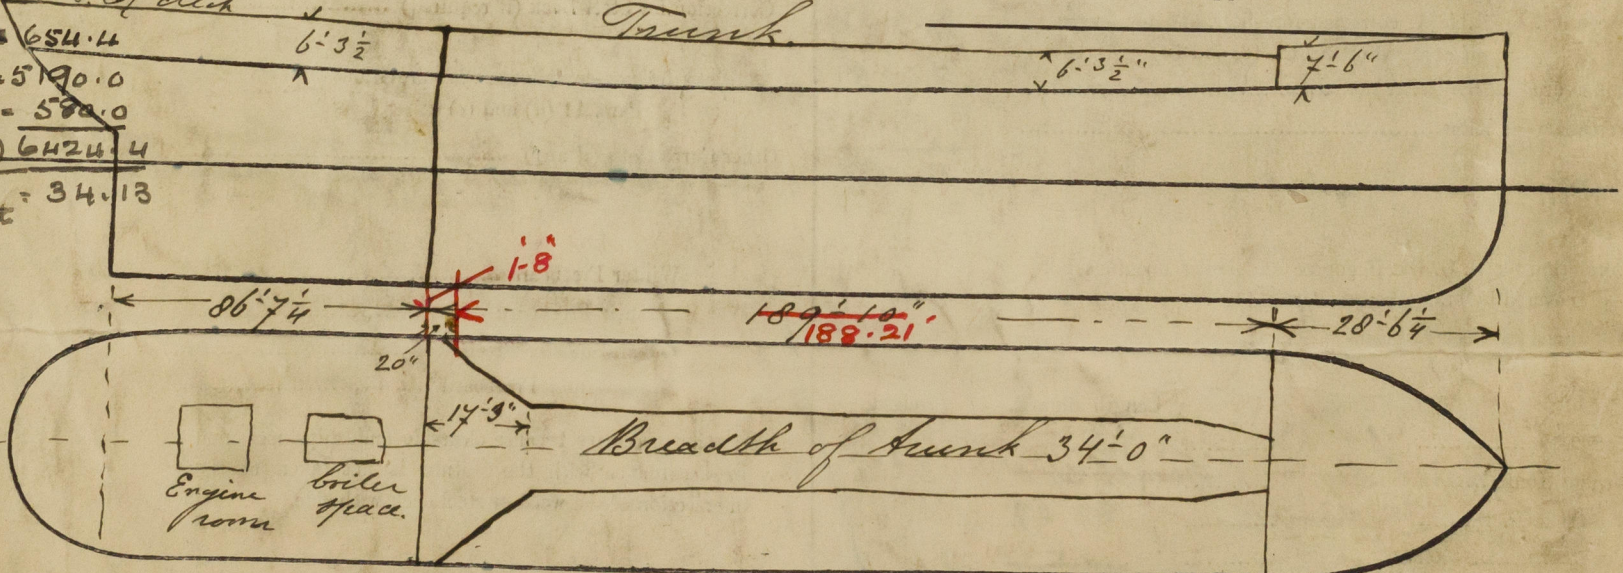 deck
Trunk.
= 654.4
= 5190.0
= 580.0
) 6424.4
= 34.13
6'-3½
6'-3½"
7'-6"
1'-8"
86'-7¼
189'-10"
188.21'
28'-6¼
20"
17'-9"
Breadth of trunk 34'-0"
Engine
room
boiler
space.